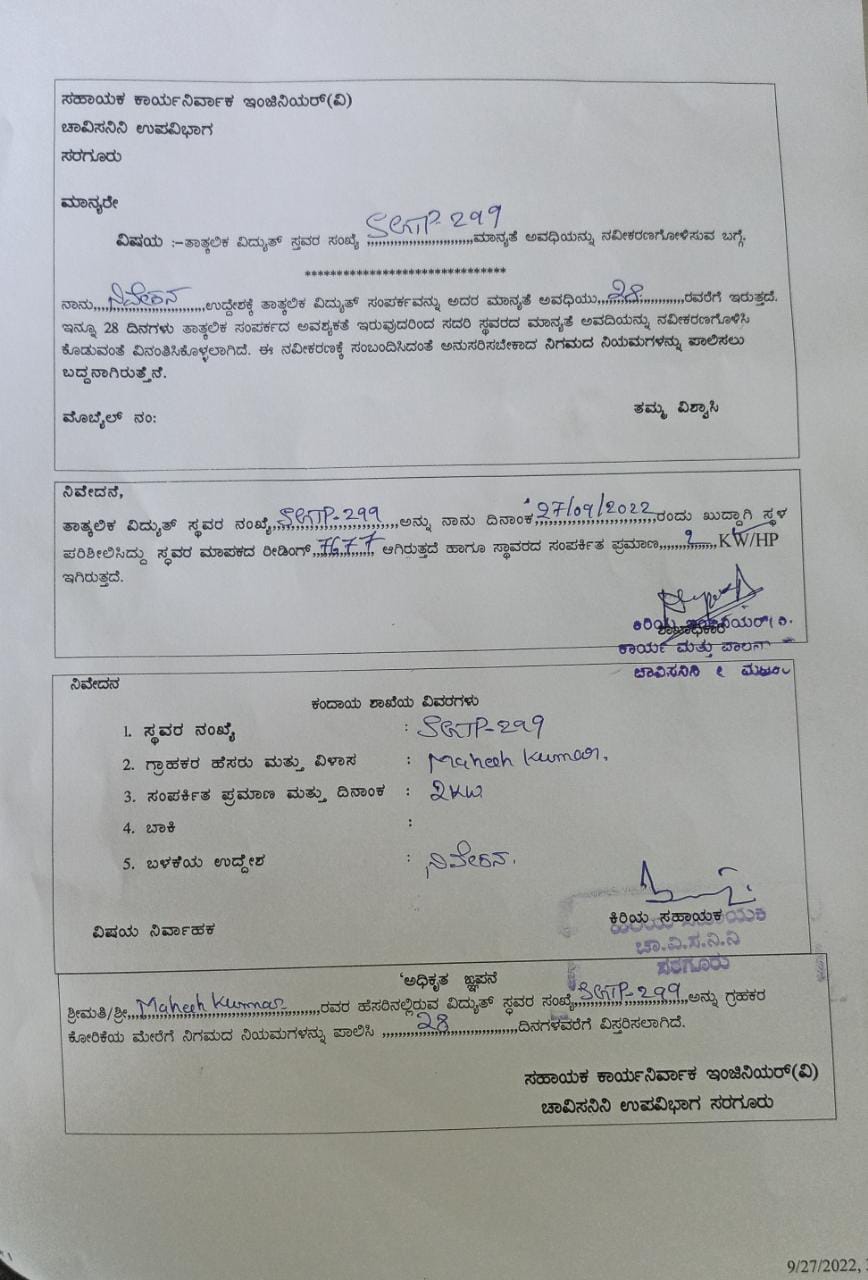 ಸಹಾಯಕ ಕಾರ್ಯನಿರ್ವಾಕ ಇಂಜಿನಿಯರ್(ವಿ)
ಚಾವಿಸನಿನಿ ಉಪವಿಭಾಗ
ಸರಗೂರು
ಮಾನ್ಯರೇ
ವಿಷಯ :-ತಾತ್ಕಲಿಕ ವಿದ್ಯುತ್ ಸ್ತವರ ಸಂಖ್ಯೆ SGTP-299 ಮಾನ್ಯತೆ ಅವಧಿಯನ್ನು ನವೀಕರಣಗೋಳಿಸುವ ಬಗ್ಗೆ.
*******************************
ನಾನು,,,ನಿವೇಶನ,,,ಉದ್ದೇಶಕ್ಕೆ ತಾತ್ಕಲಿಕ ವಿದ್ಯುತ್ ಸಂಪರ್ಕವನ್ನು ಅದರ ಮಾನ್ಯತೆ ಅವಧಿಯು,,,28,,,ರವರೆಗೆ ಇರುತ್ತದೆ.
ಇನ್ನೂ 28 ದಿನಗಳು ತಾತ್ಕಲಿಕ ಸಂಪರ್ಕದ ಅವಶ್ಯಕತೆ ಇರುವುದರಿಂದ ಸದರಿ ಸ್ಥವರದ ಮಾನ್ಯತೆ ಅವದಿಯನ್ನು ನವೀಕರಣಗೊಳಿಸಿ
ಕೊಡುವಂತೆ ವಿನಂತಿಸಿಕೊಳ್ಳಲಾಗಿದೆ. ಈ ನವೀಕರಣಕ್ಕೆ ಸಂಬಂದಿಸಿದಂತೆ ಅನುಸರಿಸಬೇಕಾದ ನಿಗಮದ ನಿಯಮಗಳನ್ನು ಪಾಲಿಸಲು
ಬದ್ದನಾಗಿರುತ್ತೆನೆ.
ತಮ್ಮ ವಿಶ್ವಾಸಿ
ಮೊಬೈಲ್ ನಂ:
ನಿವೇದನೆ,
ತಾತ್ಕಲಿಕ ವಿದ್ಯುತ್ ಸ್ಥವರ ನಂಖ್ಯೆ,,,SGTP-299,,,ಅನ್ನು ನಾನು ದಿನಾಂಕ,,,27/09/2022,,,ರಂದು ಖುದ್ದಾಗಿ ಸ್ಥಳ
ಪರಿಶೀಲಿಸಿದ್ದು ಸ್ಥವರ ಮಾಪಕದ ರೀಡಿಂಗ್,,,7677,,, ಆಗಿರುತ್ತದೆ ಹಾಗೂ ಸ್ಥಾವರದ ಸಂಪರ್ಕಿತ ಪ್ರಮಾಣ,,,2,,,KW/HP
ಇಗಿರುತ್ತದೆ.
ಶಾಖಾಧಿಕಾರಿ
ಕಿರಿಯ ಇಂಜಿನಿಯರ್(ವಿ.
ಕಾರ್ಯ ಮತ್ತು ಪಾಲನ
ಚಾವಿಸನಿನಿ
ನಿವೇದನ
ಕಂದಾಯ ಶಾಖೆಯ ವಿವರಗಳು
1. ಸ್ಥವರ ನಂಖ್ಯೆ : SGTP-299
2. ಗ್ರಾಹಕರ ಹೆಸರು ಮತ್ತು ವಿಳಾಸ : Mahesh Kumar.
3. ಸಂಪರ್ಕಿತ ಪ್ರಮಾಣ ಮತ್ತು ದಿನಾಂಕ : 2KW
4. ಬಾಕಿ :
5. ಬಳಕೆಯ ಉದ್ದೇಶ : ನಿವೇಶನ.
ವಿಷಯ ನಿರ್ವಾಹಕ ಕಿರಿಯ ಸಹಾಯಕ
ಹಿರಿಯ ಸಹಾಯಕ
ಚಾ.ವಿ.ಸ.ನಿ.ನಿ
ಸರಗೂರು
'ಅಧಿಕೃತ ಜ್ಞಾಪನೆ
ಶ್ರೀಮತಿ/ಶ್ರೀ,,,Mahesh Kumar,,,ರವರ ಹೆಸರಿನಲ್ಲಿರುವ ವಿದ್ಯುತ್ ಸ್ಥವರ ಸಂಖ್ಯೆ,,,SGTP-299,,,ಅನ್ನು ಗ್ರಹಕರ
ಕೋರಿಕೆಯ ಮೇರೆಗೆ ನಿಗಮದ ನಿಯಮಗಳನ್ನು ಪಾಲಿಸಿ ,,,28,,,ದಿನಗಳವರೆಗೆ ವಿಸ್ತರಿಸಲಾಗಿದೆ.
ಸಹಾಯಕ ಕಾರ್ಯನಿರ್ವಾಕ ಇಂಜಿನಿಯರ್(ವಿ)
ಚಾವಿಸನಿನಿ ಉಪವಿಭಾಗ ಸರಗೂರು
9/27/2022,